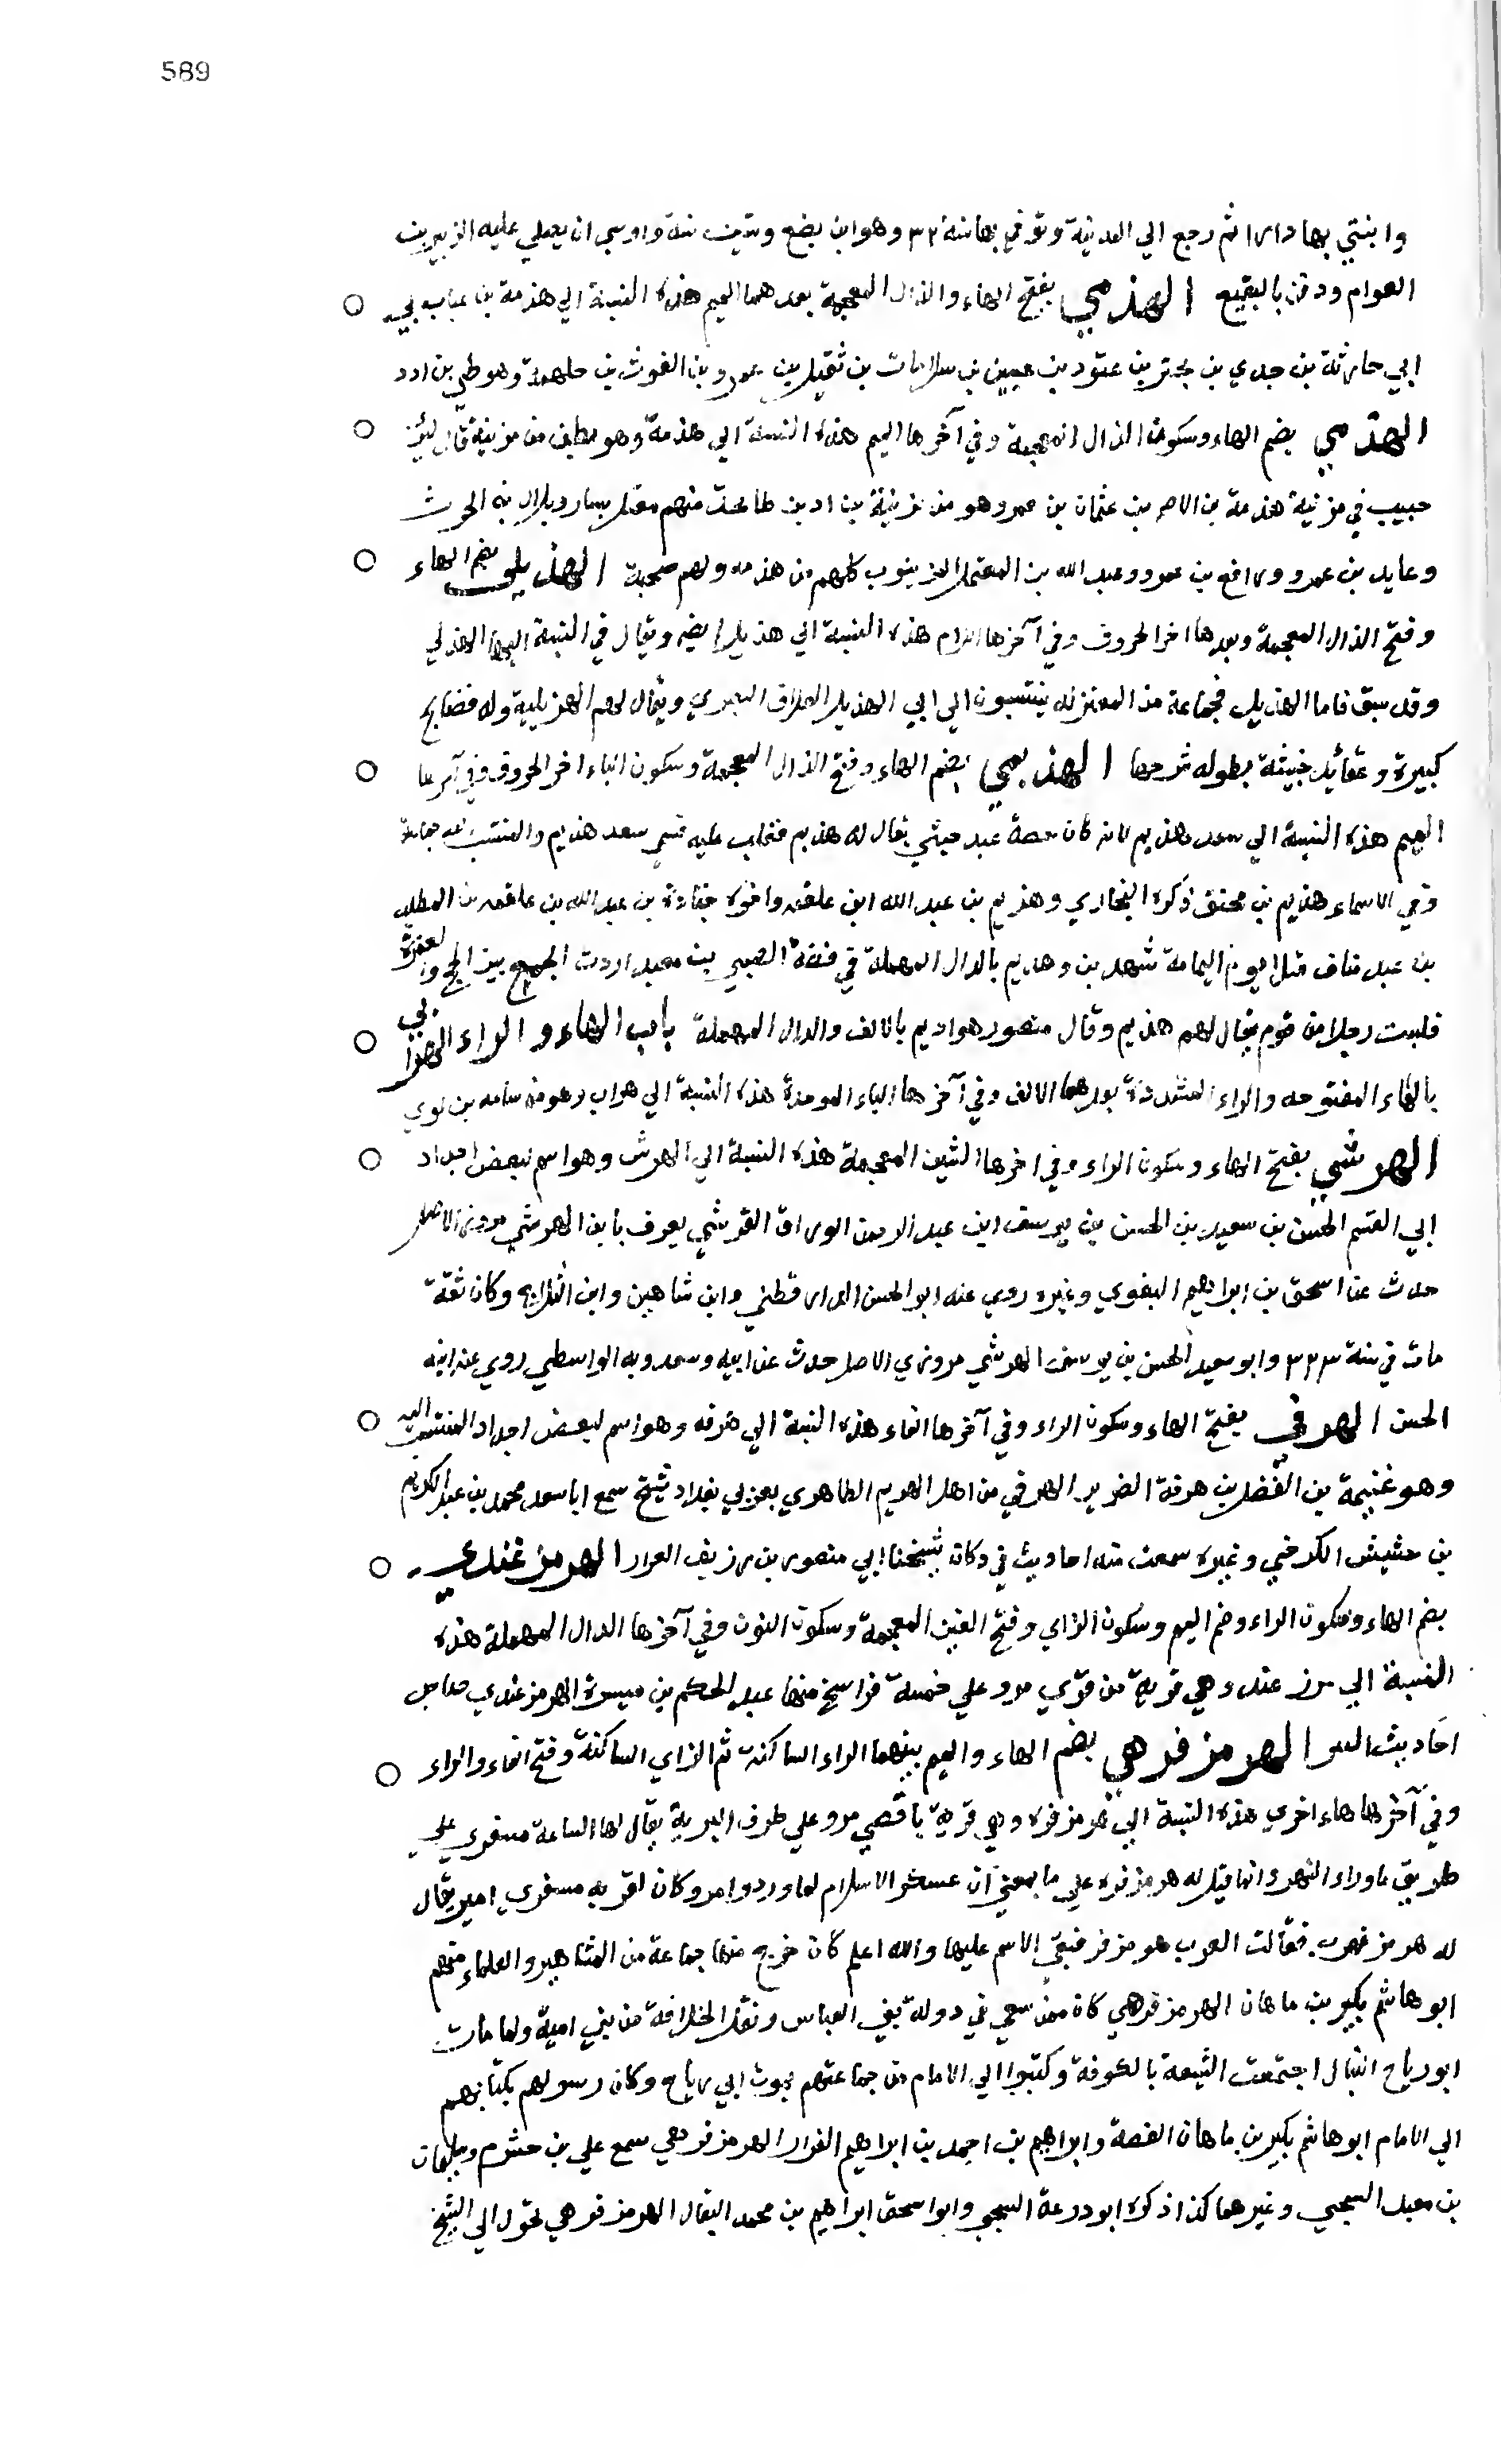 589
وابنتي بها دارا ثم رجع الي المدينة وتوفي بها سنة ٣٢ وهو ابن بضع وستين سنة واوسي ان يصلي عليه الزبير بن
العوام ودفن بالبقيع الهذمي بفتح الهاء والذال المعجمة بعدهما الميم هذه النسبة الي هذمة بن عتاب بن
ابي حارثة بن جدي بن بحتر بن عتود بن عنين بن سلامان بن ثعل بن عمرو بن الغوث بن جلهمة وهو طي بن ادد
الهذمي بضم الهاء وسكون الذال المعجمة وفي آخرها الميم هذه النسبة الي هذمة وهو بطن من مزينة قال ابن
حبيب في مزينة هذمة بن الاطم بن عثمان بن عمرو هو من مزينة بن اد بن طابخة منهم معقل بن يسار وبلال بن الحرث
وعايد بن عمرو ورافع بن عمرو وعبد الله بن المغفل المزنيون كلهم من هذمه ولهم صحبة الهذيلي بضم الهاء
وفتح الذال المعجمة وبعدها اخر الحروف وفي آخرها اللام هذه النسبة الي هذيل ايضا ويقال في النسبة اليها الهذلي
وقد سبق فاما الهذيلي فجماعة من المعتزله ينتسبون الي ابي الهذيل العلاف البصري ويقال لهم الهذيلية وله فضايح
كبيرة وعقائد خبيثة يطول شرحها الهذيمي بضم الهاء وفتح الذال المعجمة وسكون الياء اخر الحروف وفي آخرها
الميم هذه النسبة الي سعد هذيم لانه كان حضنه عبد حبشي يقال له هذيم فغلب عليه فسمي سعد هذيم والمنتسب اليه جماعة
وفي الاسماء هذيم بن ذكره البخاري وهذيم بن عبد الله ابن علقمه واخوه جنادة بن عبد الله بن علقمه بن المطلب
بن عبد مناف قتلا يوم اليمامة شهيدين وهديم بالدال المهملة في قصة الصبي بن معبد اردت الجمع بين الحج والعمرة
فلقيت رجلا من قوم يقال لهم هذيم وقال منصور هو اديم بالالف والدال المهملة باب الهاء و الراء الهرابي
بالهاء المفتوحه والراء المشددة بعدهما الالف وفي آخرها الباء الموحدة هذه النسبة الي هراب وهو من سامه بن لوي
الهرشي بفتح الهاء وسكون الراء وفي اخرها الشين المعجمة هذه النسبة الي الهرش وهو اسم لبعض اجداد
ابي القسم الحسن بن سعيد بن الحسن بن يوسف ابن عبد الرحمن الوراق القرشي يعرف بابن الهرشي مروزي الاصل
حدث عن اسحق بن ابراهيم البغوي وغيره روي عنه ابو الحسن الدارقطني وابن شاهين وابن الثلاج وكان ثقة
مات في سنة ٣٣٣ وابو سعيد الحسن بن يوسف الهرشي مروزي الاصل حدث عن ابيه وسعدويه الواسطي روي عنه ابنه
الحسن الهرفي بفتح الهاء وسكون الراء وفي آخرها الفاء هذه النسبة الي هرفه وهو اسم لبعض اجداد المنتسب اليه
وهو غنيمة بن الفضل بن هرفة الضرير الهرفي من اهل الحريم الطاهري بغربي بغداد شيخ سمع ابا سعد محمد بن عبد الكريم
بن حشيش الكرخي وغيره سمعت منه احاديث في دكان شيخنا ابي منصور بن زريق القزاز الهرمزغندي
بضم الهاء وسكون الراء وضم الميم وسكون الزاي وفتح الغين المعجمة وسكون النون وفي آخرها الدال المهملة هذه
النسبة الي هرمزغند وهي قرية من قري مرو علي خمسة فراسخ منها عبد الحكم بن ميسرة الهرمزغندي صاحب
احاديث الهرمزفرهي بضم الهاء والميم بينهما الراء الساكنة ثم الزاي الساكنة وفتح الفاء والراء
وفي آخرها هاء اخري هذه النسبة الي هرمزفره وهي قرية باقصي مرو علي طرف البرية يقال لها الساعة مسفري علي
طريق ماوراء النهر وانما قيل له هرمزفره علي ما بلغني ان عسكر الاسلام لما وردوا مرو كان لقريه مسفري امير يقال
له هرمز فهرب فقالت العرب هرمز فر فبقي الاسم عليها والله اعلم كان خرج منها جماعة من المشاهير والعلماء منهم
ابو هاشم بكير بن ماهان الهرمزفرهي كان ممن سعي في دولة بني العباس ونقل الخلافة من بني امية ولما مات
ابو رياح النبال اجتمعت الشيعة بالكوفة وكتبوا الي الامام من جماعتهم بموت ابي رياح وكان رسولهم بكتابهم
الي الامام ابو هاشم بكير بن ماهان القصة وابراهيم بن احمد بن ابراهيم الهرمزفرهي سمع علي بن خشرم وسليمان
بن معبد السنجي وغيرهما كذا ذكره ابو زرعة السنجي وابو اسحق ابراهيم بن محمد البقال الهرمزفرهي تحول الي الشيخ